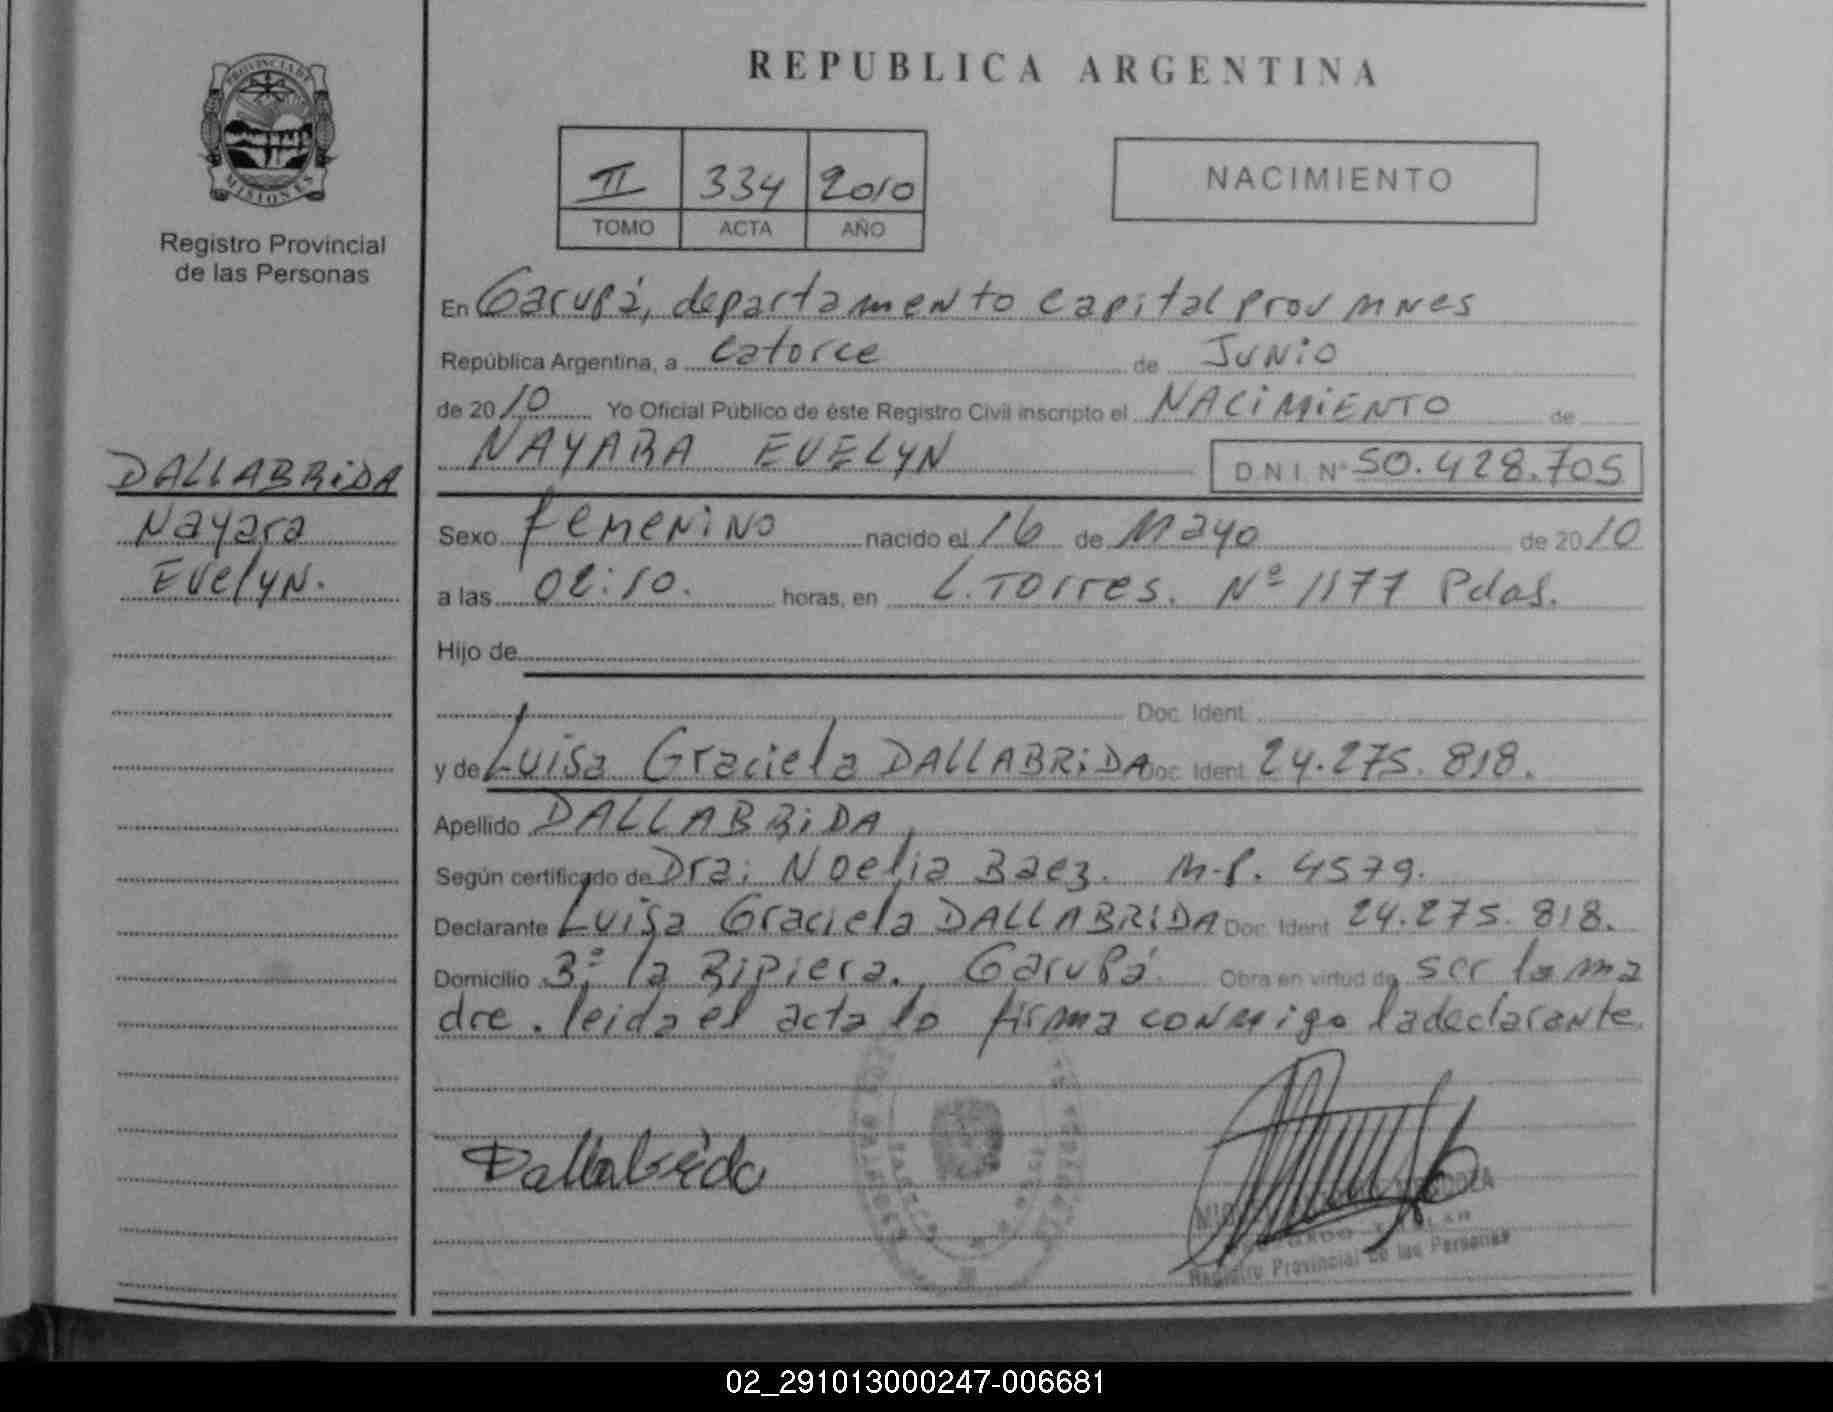 REPUBLICA ARGENTINA
PROVINCIA DE
MISIONES
Registro Provincial
de las Personas
II 334 2010
TOMO ACTA AÑO
NACIMIENTO
En Garupá, departamento Capital Prov Mnes
República Argentina, a catorce de Junio
de 2010 Yo Oficial Público de éste Registro Civil inscripto el NACIMIENTO de
NAYARA EVELYN D.N.I. Nº 50.428.705
DALLABRIDA
Nayara
Evelyn.
Sexo femenino nacido el 16 de Mayo de 2010
a las 02:10. horas, en L. Torres. Nº 1177 Pdas.
Hijo de
Doc. Ident.
y de Luisa Graciela DALLABRIDA Doc. Ident. 24.275.818.
Apellido DALLABRIDA
Según certificado de Dra: Noelia Baez. M.P. 4579.
Declarante Luisa Graciela DALLABRIDA Doc. Ident. 24.275.818.
Domicilio Bº la Ripiera. Garupá. Obra en virtud de ser la ma
dre. leida el acta lo firma conmigo la declarante.
Dallabrida
Registro Provincial de las Personas
02_291013000247-006681